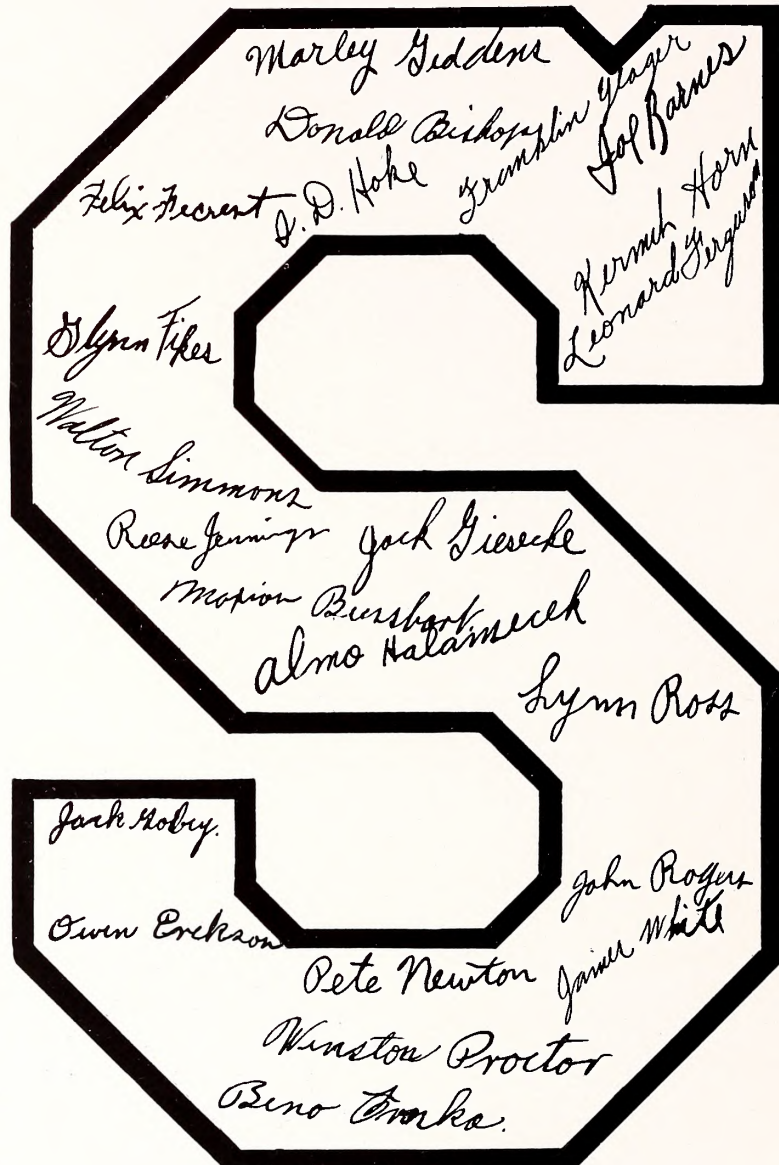 Marley Giddens
Donald Bishop
Franklin Yeager
Joe Barnes
Felix Fecrent
I. D. Hoke
Kermit Horn
Leonard Ferguson
Glynn Fikes
Walton Simmons
Reese Jennings
Jack Giesecke
Marion Bursbart
Almo Halamicek
Lynn Ross
Jack
John Rogers
Owen Erekson
James White
Pete Newton
Winston Proctor
Beno